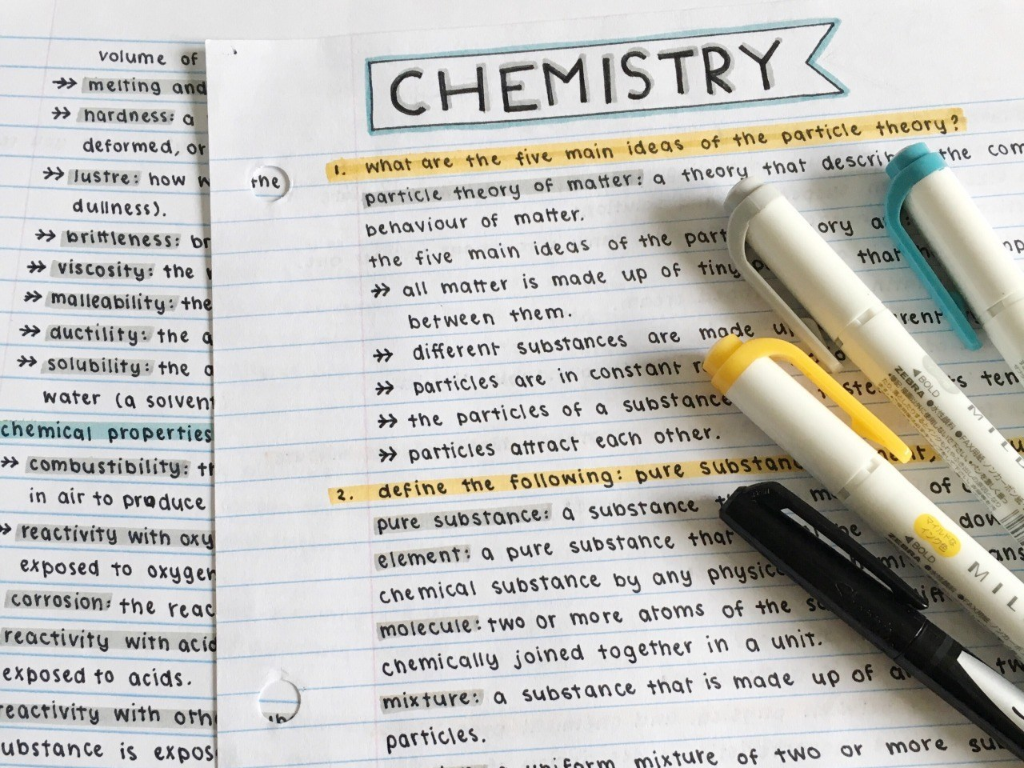 volume of
melting and
hardness: a
deformed, or
lustre: how
dullness).
brittleness: br
viscosity: the
malleability: the
ductility: the
solubility: the
water (a solvent
chemical properties
combustibility:
in air to produce
reactivity with oxy
exposed to oxygen
corrosion: the reac
reactivity with acid
exposed to acids.
reactivity with oth
ubstance is expos
CHEMISTRY
1. what are the five main ideas of the particle theory?
the
particle theory of matter: a theory that describ the com
behaviour of matter.
the five main ideas of the part ory a
all matter is made up of tiny that
between them.
different substances are made u
particles are in constant
the particles of a substance
particles attract each other.
2. define the following: pure substanc
pure substance: a substance
element: a pure substance that
chemical substance by any physic
molecule: two or more atoms of the
chemically joined together in a unit.
mixture: a substance that is made up of
particles.
a uniform mixture of two or more sub
ZEBRA
BOLD
マイルドな
インク色
ZEBRA
BOLD
MIL